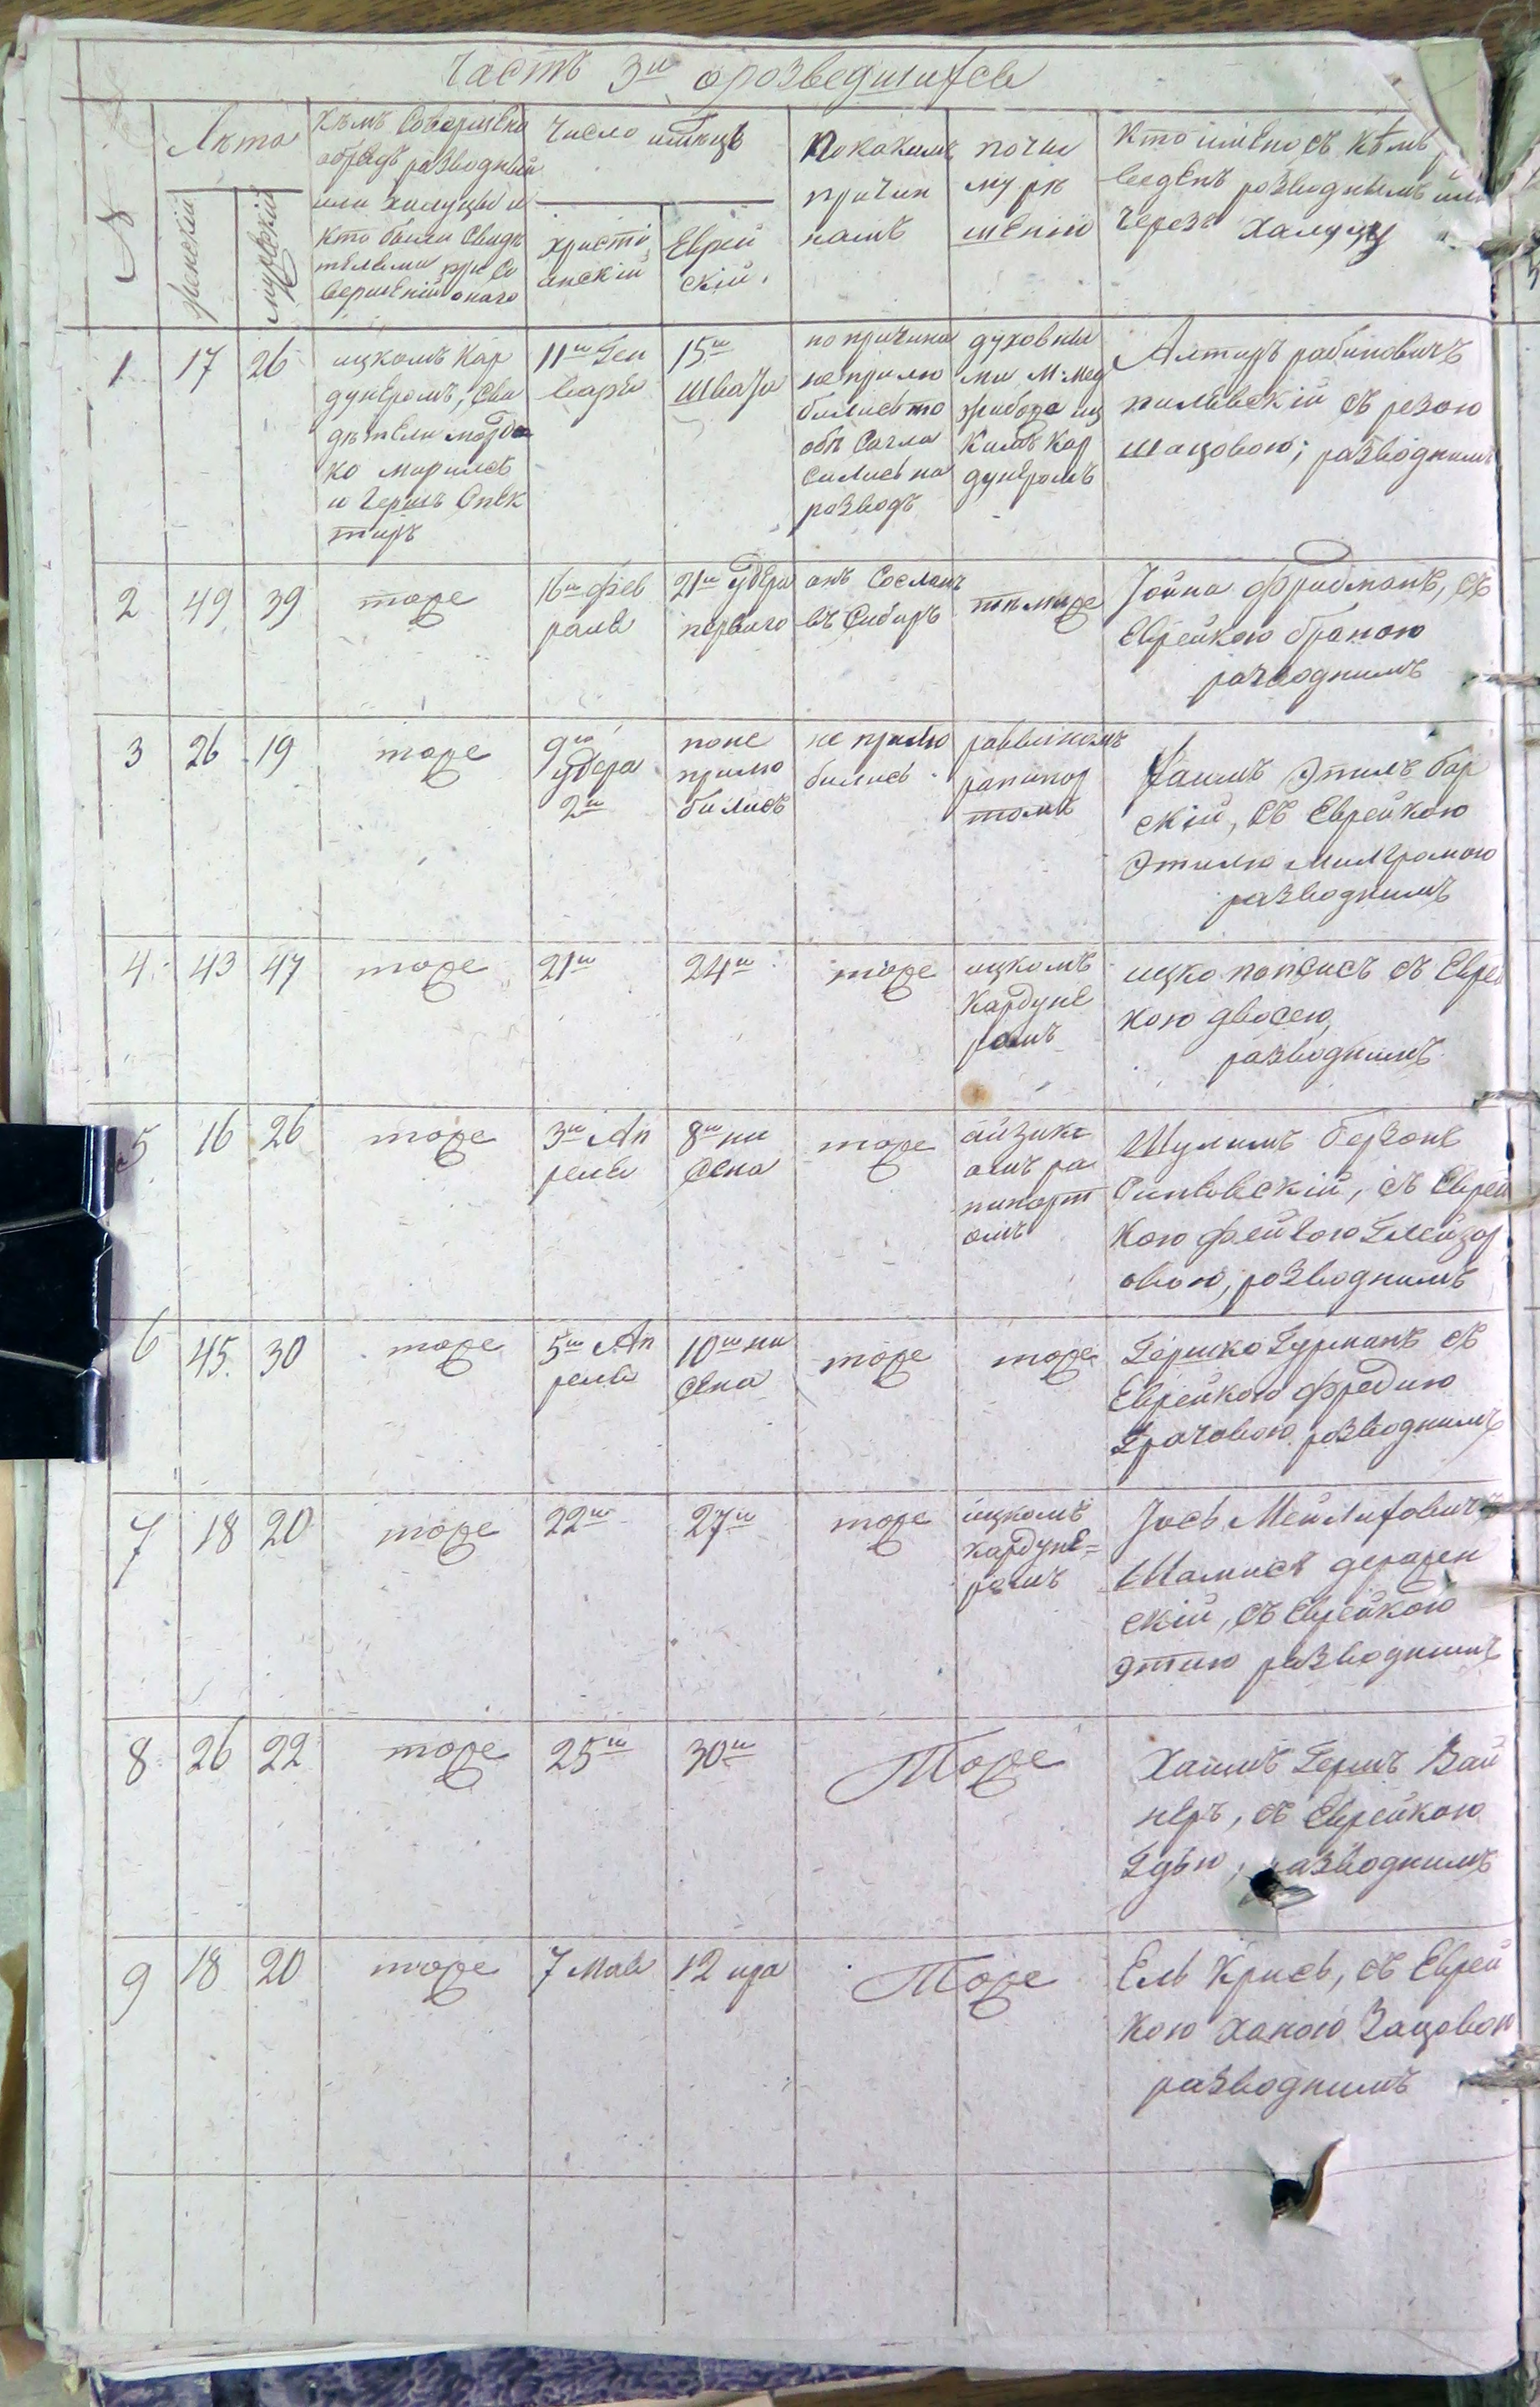 Часть 3ⁱⁱ о розведшихся
№
Лѣта
женскій
мужескій
Кѣмъ Совершенъ
обрядъ разводный
или халуцы и
кто были Свидѣ
телями при Со
вершеній онаго
Число имѣцъ
христі
анскій
Еврей
скій.
По какимъ
причин
намъ
по чіи
му рѣ
шенію
Кто имено съ кѣмъ
веденъ розводнымъ или
черезъ халуцу
1
17
26
ицкомъ Кар
дунеромъ, Сви
дѣтели мордъ
ко
и Гершъ Спек
торъ
11ⁱⁱ Ген
варя
15ⁱⁱ
Швата
по причине
не прилю
билисьто
обѣ Согла
сились на
розводъ
духовны
ми М: Мед
жибоже иц
комъ Кар
дунеромъ
Алтеръ рабиновичъ
пилявскій съ розою
шацовою; разводнимъ
2
49
39
тоже
16ⁱⁱ фев
раля
21ⁱⁱ удера
перваго
онъ Сосланъ
въ Сибирь
тѣмже
Іойна фридманъ, съ
Еврейкою браною
разводнимъ
3
26
19
тоже
9го
удера
2ⁱⁱ
поне
прилю
бились
не прилю
бились
раввиномъ
рапапор
томъ
Хаимъ Этилъ бар
скій, съ Еврейкою
Этилю Милграмою
разводнимъ
4
43
47
тоже
21ⁱⁱ
24ⁱⁱ
тоже
ицкомъ
Кардуне
ромъ
ицко съ Еврей
кою двосею
разводнимъ
5
16
26
тоже
3ⁱⁱ Ап
реля
8ⁱⁱ ни
сена
тоже
айзико
омъ ра
папорт
омъ
Шулимъ
Синявскій, съ Еврей
кою фейгою Глейзор
овою, розводнимъ
6
45
30
тоже
5ⁱⁱ Ап
реля
10ⁱⁱ ни
сена
тоже
тоже
Гершко Гурманъ съ
Еврейкою фредию
Грачовою розводнимъ
7
18
20
тоже
22ⁱⁱ
27ⁱⁱ
тоже
ицкомъ
кардуне=
ромъ
Іось Мейлиховичъ
Шамисъ деражен
скій, съ Еврейкою
Этию разводнимъ
8
26
22
тоже
25ⁱⁱ
30ⁱⁱ
Тоже
Хаимъ Гершъ Вай
неръ, съ Еврейкою
Гдѣю, разводнимъ
9
18
20
тоже
7 Мая
12 ира
Тоже
Ель Крись, съ Еврей
кою ханою Зацовою
разводнимъ